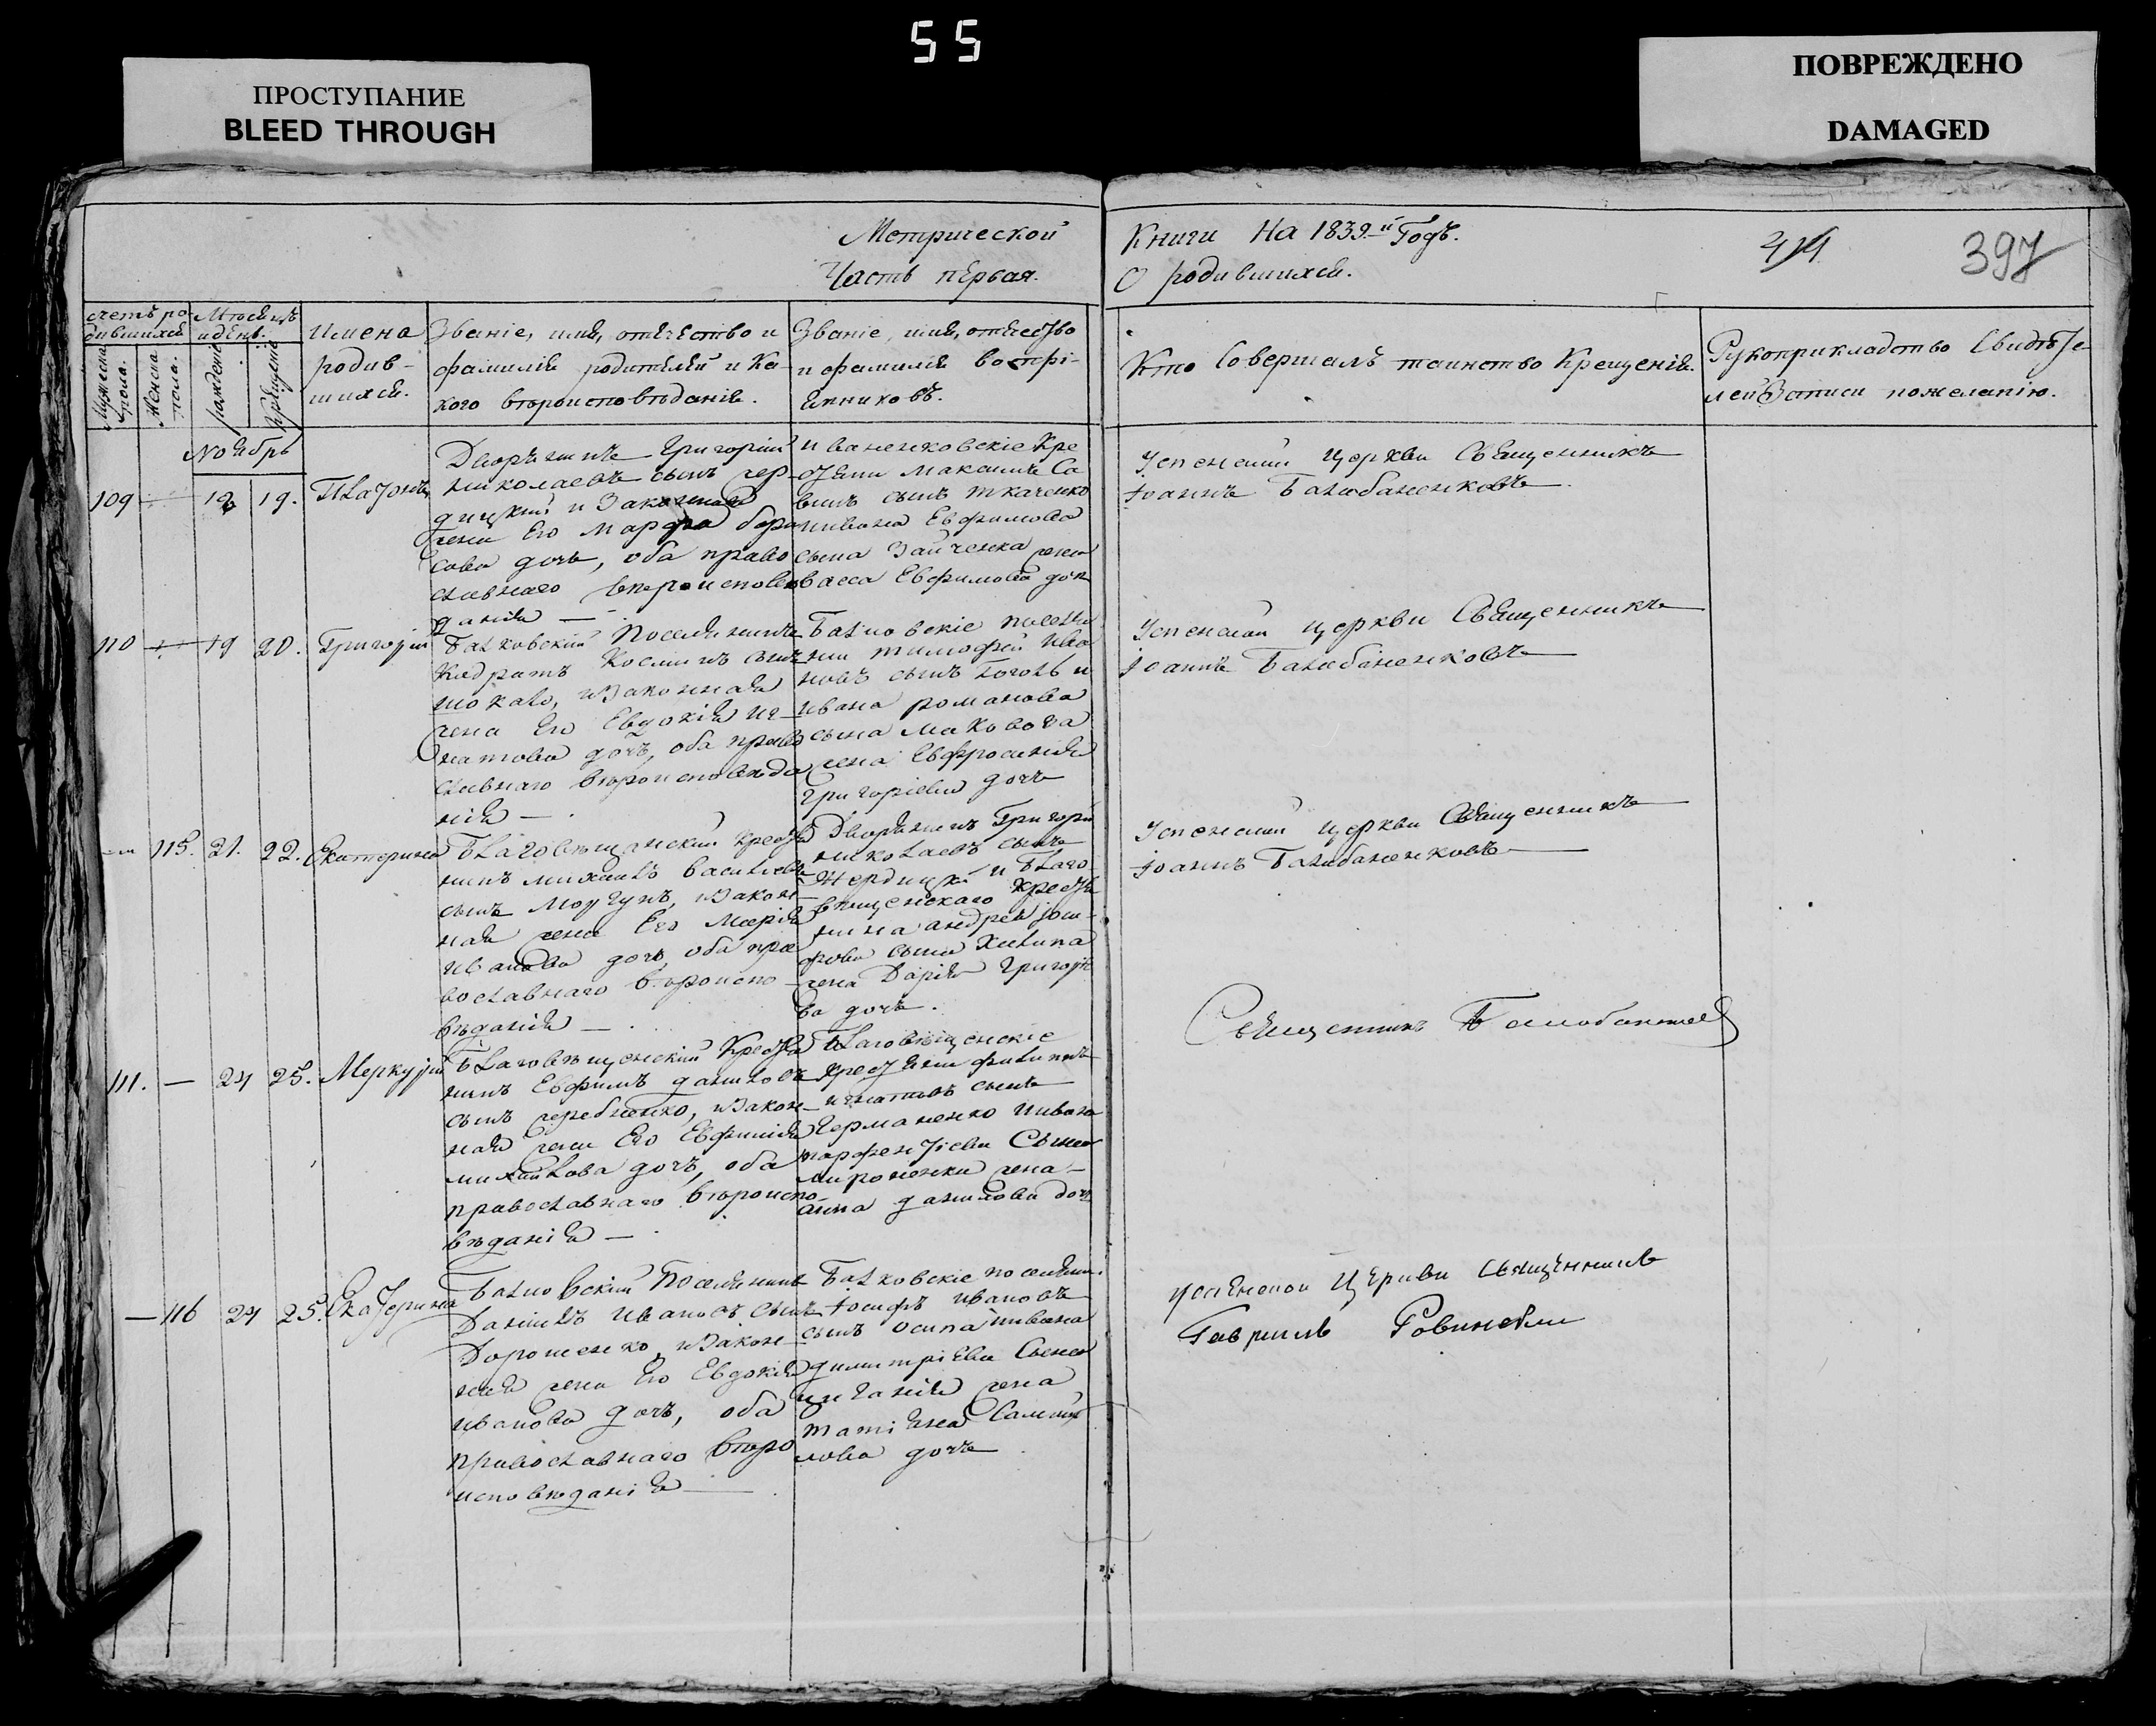 55
ПРОСТУПАНИЕ
BLEED THROUGH
ПОВРЕЖДЕНО
DAMAGED
Метрической Книги на 1839-й Годъ.
397
Часть первая. О родившихся.
счетъ ро-
дившихся
Мужеска
пола.
Женска
пола.
Мѣсяцъ
и день.
рожденіе
Крещеніе
имена
родив-
шихся.
Званіе, имя, отечество и
фамилія родителей и ка-
кого вѣроисповѣданія.
Званіе, имя, отечество
и фамилія воспрі-
емниковъ.
Кто Совершалъ таинство Крещенія.
Рукоприкладство Свидѣте-
лей Записи пожеланію.
Ноябрь
109 — 19. Платонъ
Дворянинъ Григорій
николаевъ сынъ
и законная
жена Его Марфа бори
сова дочь, оба право
славнаго вероисповѣ
данія —
иваненковскіе Кре
стяни Максимъ Са
винъ сынъ ткаченко
ивана Евфимова
сына Зайченка жена
васса Евфимова доч
Успенской церкви Священникъ
Іоаннъ Балабаненковъ
110 — 19 20. Григорій
Балковскій Поселянинъ
Кодратъ Косминъ сынъ
законная
жена Его Евдокія иг-
натова дочъ, оба право
славнаго вѣроисповѣда
нія — .
Балковскіе поселян
ни тимофей Ива
новъ сынъ Гоголь и
ивана романова
сына маковоза
жена Евфросинія
Григоріева дочъ
Успенской церкви Священникъ
Іоаннъ Балабаненковъ
— 115. 21. 22. Екатерина
Благовѣщанскій крестя
нинъ михаилъ василіевъ
сынъ Моргунъ, изакон-
ная жена Его Марія
иванова дочъ, оба пра
вославнаго вѣроиспо-
вѣданія — .
Дворянинъ Григорій
николаевъ сынъ
и Благо
вѣщенскаго крестя
нина андрея
фова сына Хилипа
жена Дарія Григоріе
ва дочъ.
Успенской церкви Священникъ
Іоаннъ Балабаненковъ
Священникъ
111. — 24 25. Меркурій
Благовѣщенскій Крестя
нинъ Евфимъ даниловъ
сынъ жеребненко, изакон-
ная жена Его Евфимія
михайлова дочъ, оба
православнаго вѣроиспо-
вѣданія — .
Благовѣщенскіе
крестяни филипъ
игнатовъ сынъ
Германенко ивана
парфентіева Сына
мироненки жена —
анна данилова доч
— 116 24 25. Екатерина
Балковскій Поселянинъ
Даніилъ Ивановъ сынъ
Дорошенко, изакон-
ная жена Его Евдокія
иванова дочъ, оба
православнаго вѣро
исповѣданія —
Балковскіе поселяни.
Іосифъ ивановъ
сынъ осипа ивана
димитріева Сына
жена
татіяна Самой
лова дочъ
успенской Церкви священникъ
Гавріилъ Ровинскій